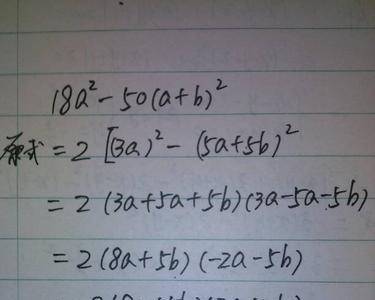 18a² - 50(a+b)²
原式 = 2 [(3a)² - (5a+5b)²
= 2 (3a+5a+5b)(3a-5a-5b)
= 2(8a+5b)(-2a-5b)